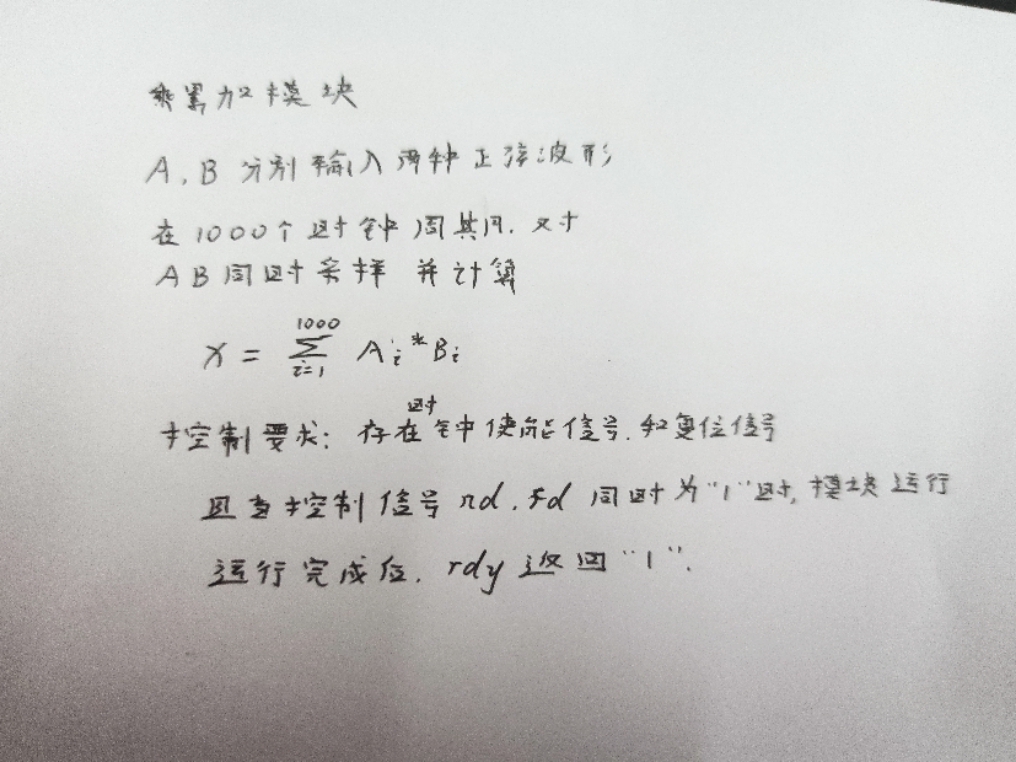 乘累加模块
A,B 分别输入两种正弦波形
在1000个时钟周期内.对
AB同时采样 并计算
X = \sum_{i=1}^{1000} A_i * B_i
控制要求: 存在时钟使能信号.和复位信号
且当控制信号 nd.fd 同时为"1"时,模块运行
运行完成位. rdy 返回"1".